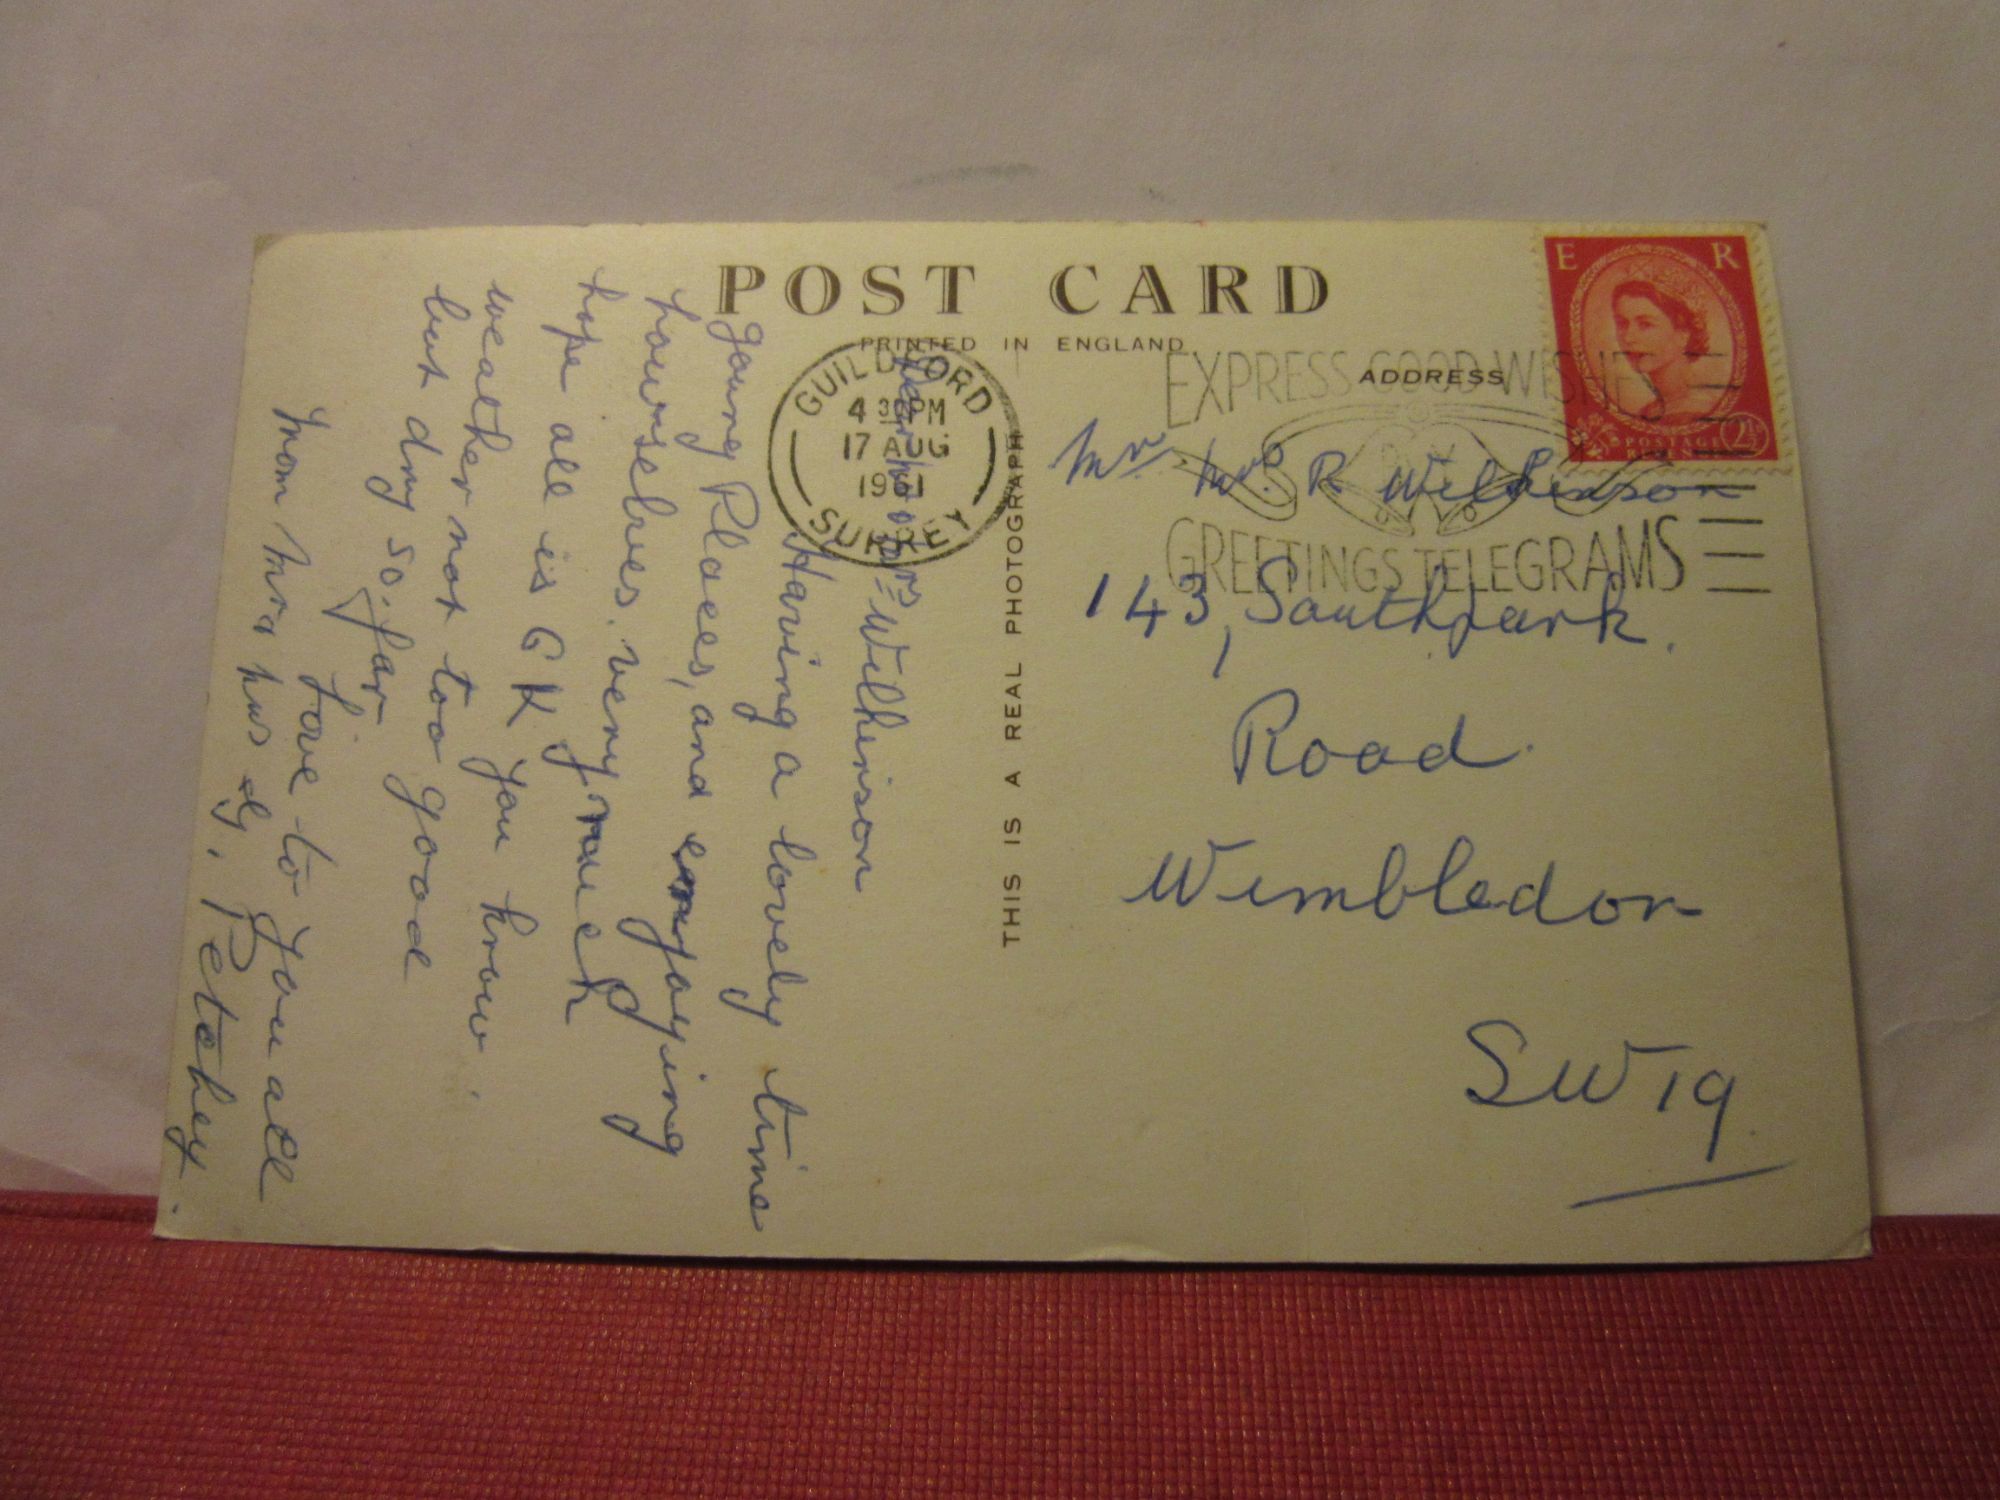 POST CARD
PRINTED IN ENGLAND
ADDRESS
THIS IS A REAL PHOTOGRAPH
E R
POSTAGE 2½
REVENUE
GUILDFORD
4 30 PM
17 AUG
1961
SURREY
EXPRESS GOOD WISHES
BY
GREETINGS TELEGRAMS
Mr Mrs. R Wilkinson
143, Southpark.
Road
Wimbledon
SW19
Dear Mr Mrs Wilkinson
Having a lovely time
going Places, and enjoying
ourselves. very much
hope all is O K you know.
weather not too good
but dry so. far
Love to you all
from Mrs